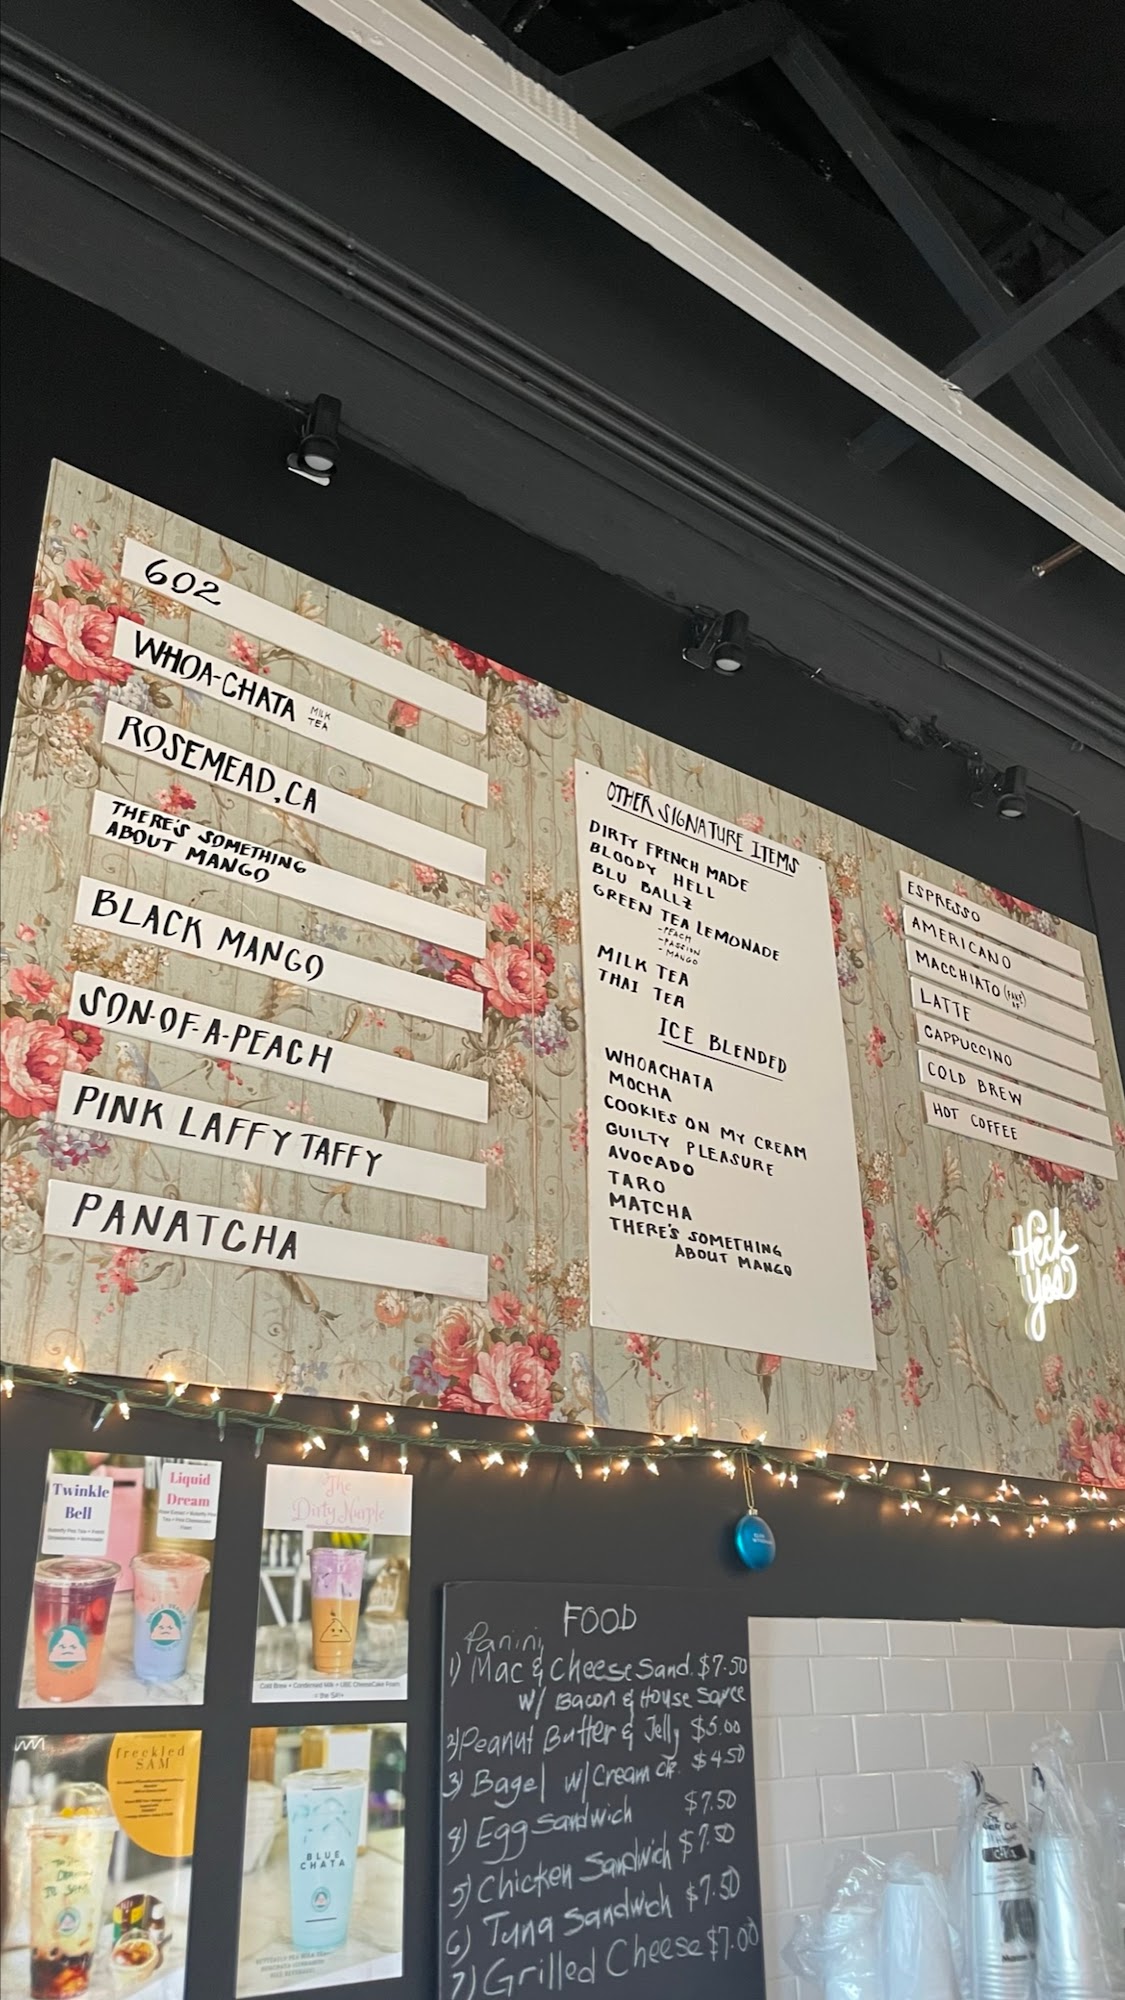 602
WHOA-CHATA MILK
TEA
ROSEMEAD, CA
THERE'S SOMETHING
ABOUT MANGO
BLACK MANGO
SON-OF-A-PEACH
PINK LAFFY TAFFY
PANATCHA
OTHER SIGNATURE ITEMS
DIRTY FRENCH MADE
BLOODY HELL
BLU BALLZ
GREEN TEA LEMONADE
-PEACH
-PASSION
-MANGO
MILK TEA
THAI TEA
ICE BLENDED
WHOACHATA
MOCHA
COOKIES ON MY CREAM
GUILTY PLEASURE
AVOCADO
TARO
MATCHA
THERE'S SOMETHING
ABOUT MANGO
ESPRESSO
AMERICANO
MACCHIATO (FAKE
AF)
LATTE
CAPPUCCINO
COLD BREW
HOT COFFEE
Heck
yes
Twinkle
Bell
Butterfly Pea Tea + Fresh
Strawberries + lemonade
Liquid
Dream
The
Dirty Nurple
Cold Brew + Condensed Milk + UBE CheeseCake Foam
= the Sh*t
freckled
SAM
BLUE
CHATA
FOOD
Panini
1) Mac & Cheese Sand. $7.50
w/ Bacon & House Sauce
2) Peanut Butter & Jelly $5.00
3) Bagel w/ Cream ch. $4.50
4) Egg Sandwich $7.50
5) Chicken Sandwich $7.50
6) Tuna Sandwich $7.50
7) Grilled Cheese $7.00